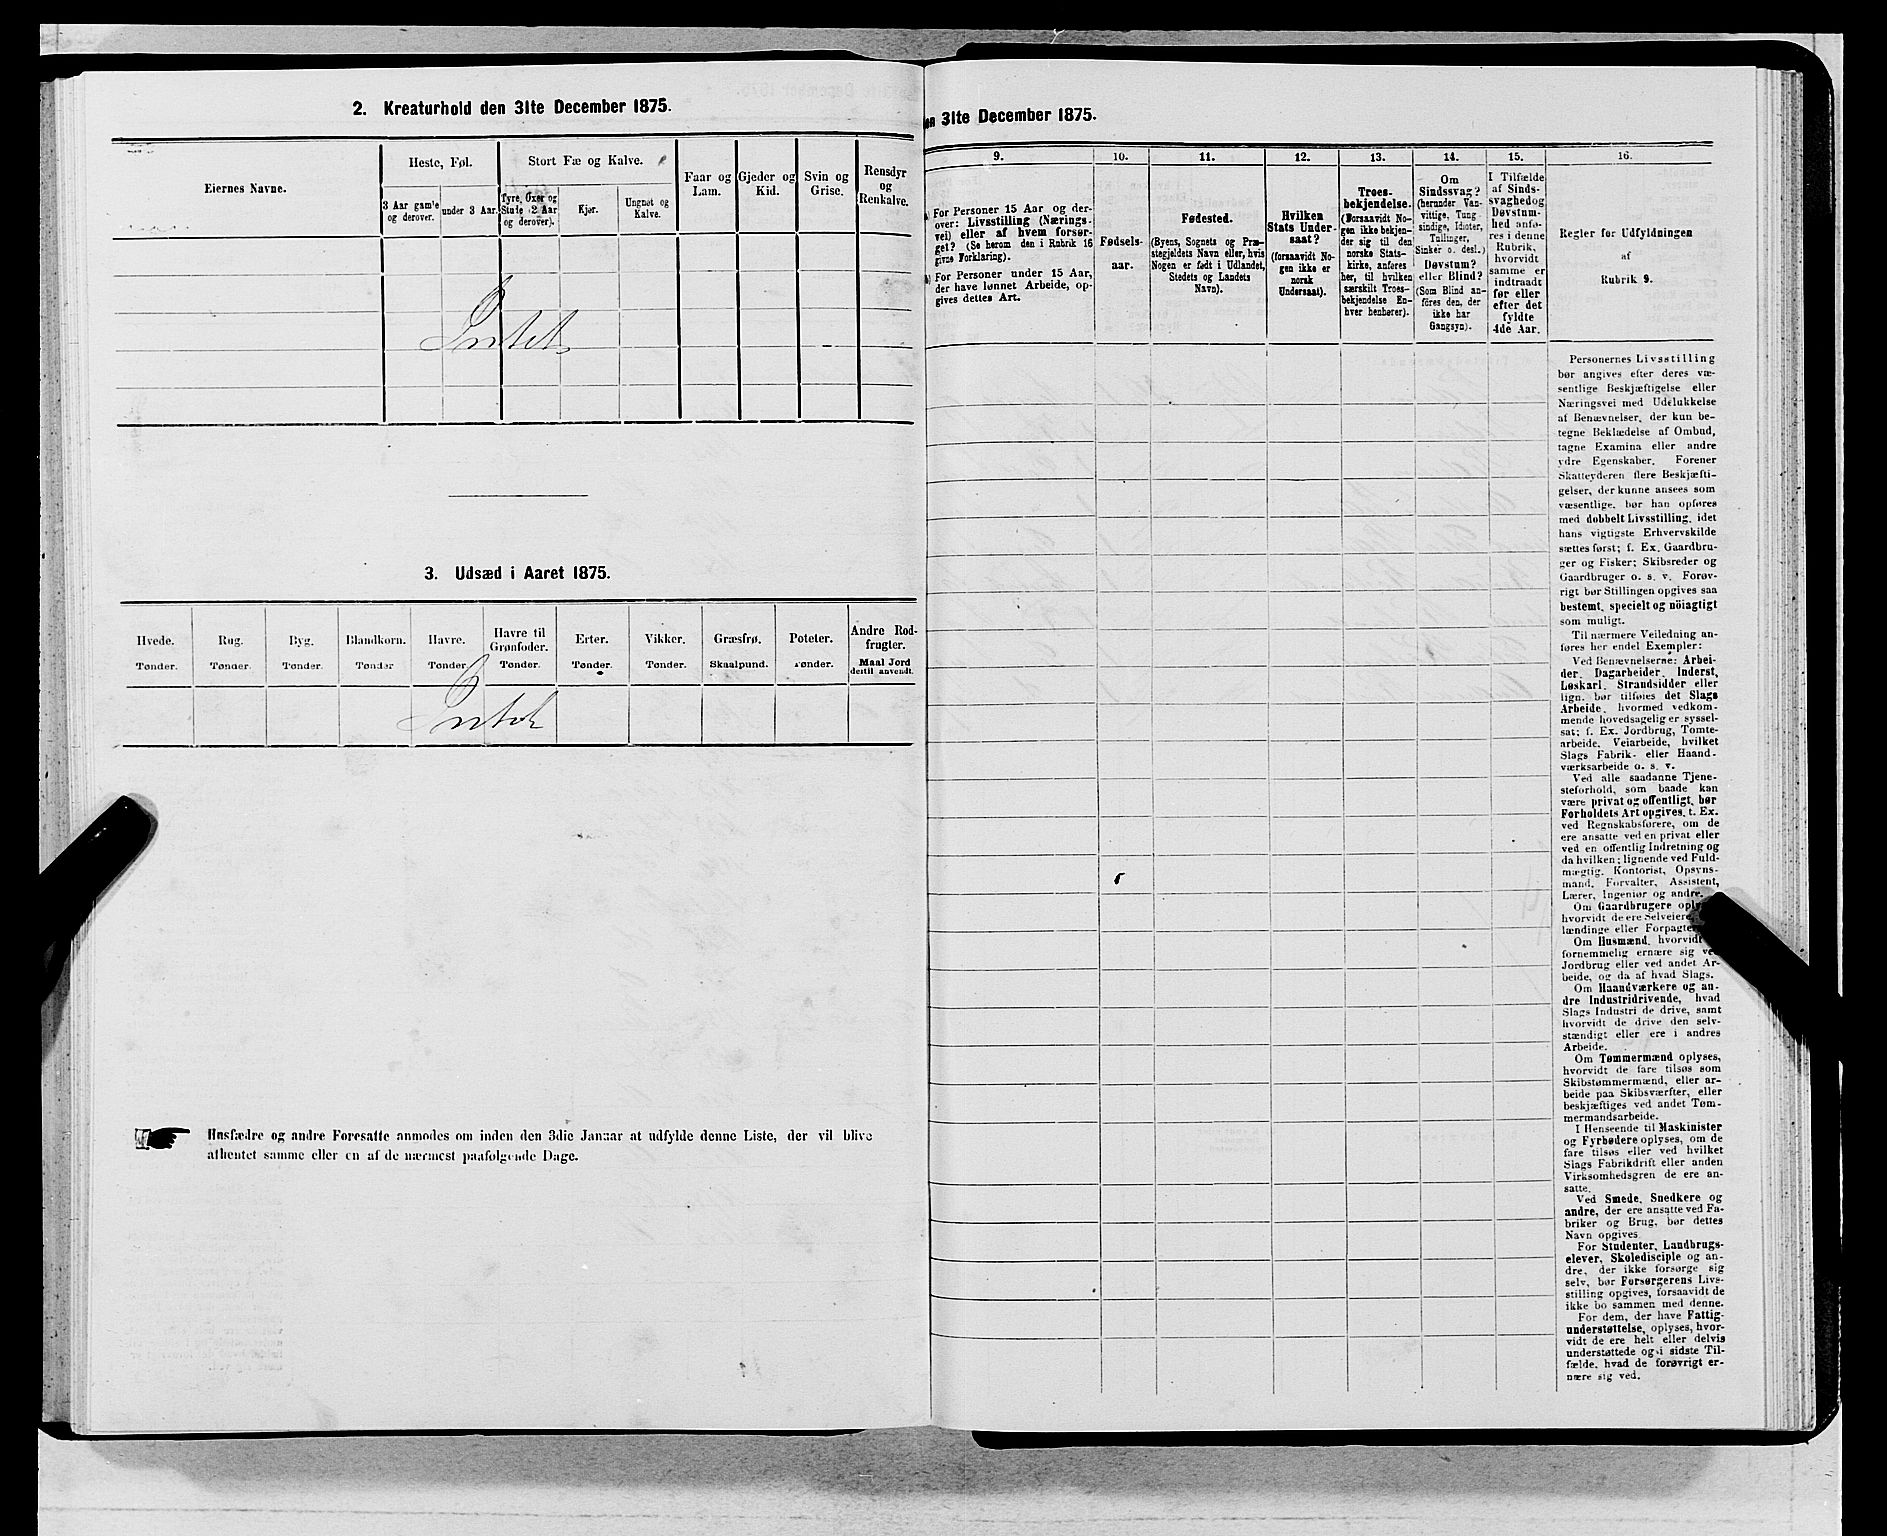 2. Kreaturhold den 31te December 1875.
Eiernes Navne.
Heste, Føl.
Stort Fæ og Kalve.
Faar og
Lam.
Gjeder og
Kid.
Svin og
Grise.
Rensdyr
og
Renkalve.
3 Aar gam'e
og derover.
under 3 Aar.
Tyre, Oxer og
Stude (2 Aar
og derover).
Kjør.
Ungnøt og
Kalve.
Intet
3. Udsæd i Aaret 1875.
Hvede.
Tønder.
Rug.
Tønder.
Byg.
Tønder.
Blandkorn.
Tønder
Havre.
Tønder.
Havre til
Grønfoder.
Tønder.
Erter.
Tønder.
Vikker.
Tønder.
Græsfrø.
Skaalpund.
Poteter.
Tønder.
Andre Rod-
frugter.
Maal Jord
dertil anvendt.
Intet
Husfædre og andre Foresatte anmodes om inden den 3die Januar at udfylde denne Liste, der vil blive
afhentet samme eller en af de nærmest paafølgende Dage.
en 31te December 1875.
9.
10.
11.
12.
13.
14.
15.
16.
For Personer 15 Aar og der-
over: Livsstilling (Nærings-
vei) eller af hvem forsør-
get? (Se herom den i Rubrik 16
givne Forklaring).
For Personer under 15 Aar,
der have lønnet Arbeide, op-
gives dettes Art.
Fødsels-
aar.
Fødested.
(Byens, Sognets og Præ-
stegjeldets Navn eller, hvis
Nogen er født i Udlandet,
Stedets og Landets
Navn).
Hvilken
Stats Under-
saat?
(forsaavidt No-
gen ikke er
norsk
Undersaat).
Troes-
bekjendelse.
(Forsaavidt No-
gen ikke bekjen-
der sig til den
norske Stats-
kirke, anføres
her, til hvilken
særskilt Troes-
bekjendelse En-
hver henhører).
Om
Sindssvag?
(herunder Van-
vittige, Tung
sindige, Idioter,
Tullinger,
Sinker o. desl.)
Døvstum?
eller Blind?
(Som Blind an-
føres den, der
ikke har
Gangsyn).
I Tilfælde
af Sinds-
svaghed og
Døvstum-
hed anfø-
res i denne
Rubrik,
hvorvidt
samme er
indtraadt
før eller
efter det
fyldte
4de Aar.
Regler for Udfyldningen
af
Rubrik 9.
Personernes Livsstilling
bør angives efter deres væ-
sentlige Beskjæftigelse eller
Næringsvei med Udelukkelse
af Benævnelser, der kun be-
tegne Beklædelse af Ombud,
tagne Examina eller andre
ydre Egenskaber. Forener
Skatteyderen flere Beskjæfti-
gelser, der kunne ansees som
væsentlige, bør han opføres
med dobbelt Livsstilling, idet
hans vigtigste Erhvervskilde
sættes først; f. Ex. Gaardbru-
ger og Fisker; Skibsreder og
Gaardbruger o. s. v. Forøv-
rigt bør Stillingen opgives saa
bestemt, specielt og nöiagtigt
som muligt.
Til nærmere Veiledning an-
føres her endel Exempler:
Ved Benævnelserne: Arbei-
der, Dagarbeider, Inderst,
Løskarl, Strandsidder eller
lign. bør tilføies det Slags
Arbeide, hvormed vedkom-
mende hovedsagelig er syssel-
sat; f. Ex. Jordbrug, Tomte-
arbeide, Veiarbeide, hvilket
Slags Fabrik- eller Haand-
værksarbeide o. s. v.
Ved alle saadanne Tjene-
steforhold, som baade kan
være privat og offentligt, bør
Forholdets Art opgives, t. Ex.
ved Regnskabsførere, om de
ere ansatte ved en privat eller
ved en offentlig Indretning og
da hvilken; lignende ved Fuld-
mægtig, Kontorist, Opsyns-
mand, Forvalter, Assistent,
Lærer, Ingeniør og andre.
Om Gaardbrugere
hvorvidt de ere Selveiere,
lændinge eller
Om Husmænd, hvorvidt
fornemmelig ernære sig
Jordbrug eller ved andet Ar-
beide, og da af hvad Slags.
Om Haandværkere og an-
dre Industridrivende, hvad
Slags Industri de drive, samt
hvorvidt de drive den selv-
stændigt eller ere i andres
Arbeide.
Om Tømmermænd oplyses,
hvorvidt de fare tilsøs som
Skibstømmermænd, eller ar-
beide paa Skibsværfter, eller
beskjæftiges ved andet Tøm-
mermandsarbeide.
I Henseende til Maskinister
og Fyrbødere oplyses, om de
fare tilsøs eller ved hvilket
Slags Fabrikdrift eller anden
Virksomhedsgren de ere an-
satte.
Ved Smede, Snedkere og
andre, der ere ansatte ved Fa-
briker og Brug, bør dettes
Navn opgives.
For Studenter, Landbrugs-
elever, Skoledisciple og an-
dre, der ikke forsørge sig
selv, bør Forsørgerens Livs-
stilling opgives, forsaavidt de
ikke bo sammen med denne.
For dem, der have Fattig-
understøttelse, oplyses, hvor-
vidt de ere helt eller delvis
understøttede og i sidste Til-
fælde, hvad de forøvrigt er-
nære sig ved.